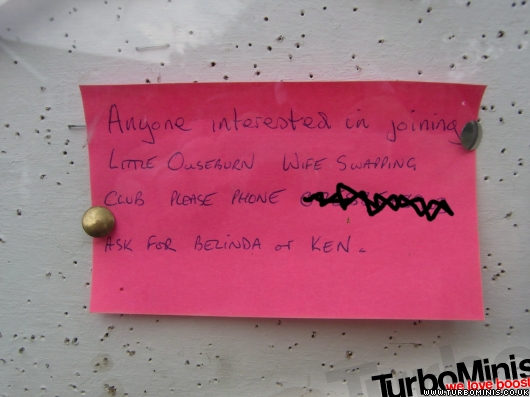 Anyone interested in joining
LITTLE OUSEBURN WIFE SWAPPING
CLUB PLEASE PHONE
ASK FOR BELINDA or KEN.
TurboMinis
we love boost
WWW.TURBOMINIS.CO.UK